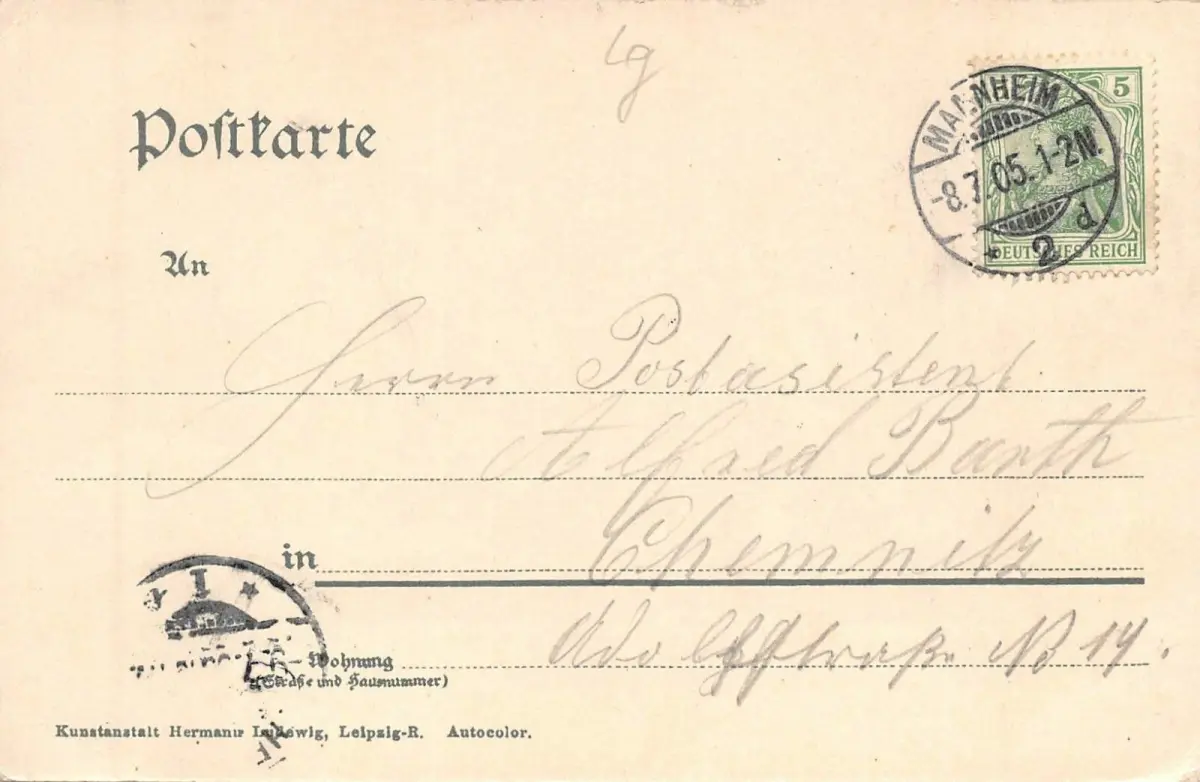 lg
Postkarte
5
MANNHEIM
-8.7.05.1-2N.
* 2 d
DEUTSCHES REICH
An
Herrn Postasistent
Alfred Barth
in Chemnitz
1 *
Wohnung Adolfstraße No 14.
(Straße und Hausnummer)
Kunstanstalt Hermann Ludewig, Leipzig-R. Autocolor.